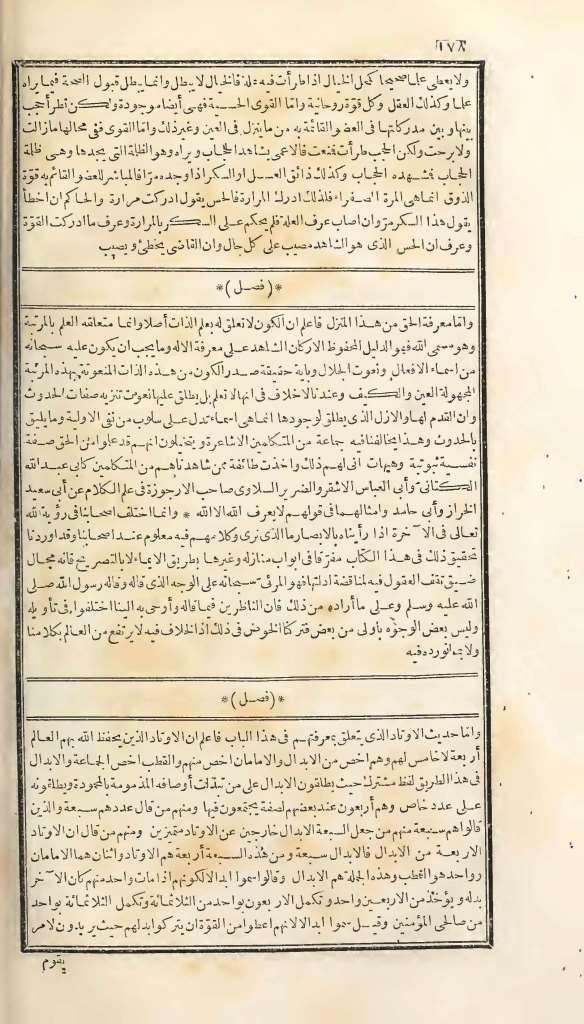 ١٧٨
ولا يعطى علما صحيحا كحل الخيال اذا طرأت فيه علة فالخيال لا يبطل وانما يبطل قبول الصحة فيما يراه
علما وكذلك العقل وكل قوة روحانية وأما القوى الحسية فهى أيضا موجودة ولكن تطرأ حجب
بينها وبين مدركاتها فى العضو القائمة به من ماء ينزل فى العين وغير ذلك وأما القوى ففى محالها ما زالت
ولا برحت ولكن الحجب طرأت فمنعت فالاعمى يشاهد الحجاب ويراه وهو الظلمة التى يجدها وهى ظلمة
الحجاب فشهده الحجاب وكذلك ذائق العسل والسكر اذا وجده مرا فالمباشر للعضو القائم به قوة
الذوق انما هى المرة الصفراء فلذلك ادرك المرارة فالحس يقول ادركت مرارة والحاكم ان اخطأ
يقول هذا السكر مر وان اصاب عرف العلة فلم يحكم على السكر بالمرارة وعرف ما ادركت القوة
وعرف ان الحس الذى هو الشاهد مصيب على كل حال وان القاضى يخطئ ويصيب
*(فصل)*
وأما معرفة الحق من هذا المنزل فاعلم ان الكون لا تعلق له بعلم الذات أصلا وانما متعلقه العلم بالمرتبة
وهو مسمى الله فهو الدليل المحفوظ الاركان الشاهد على معرفة الاله وما يجب ان يكون عليه سبحانه
من اسماء الافعال ونعوت الجلال وباية حقيقة صدر الكون من هذه الذات المنعوتة بهذه المرتبة
المجهولة العين والكيف وعندنا لاخلاف فى انها لا تعلم بل يطلق عليها نعوت تنزيه صفات الحدوث
وان القدم لها والازل الذى يطلق لوجودها انما هى اسماء تدل على سلوب من نفى الاولية وما يليق
بالحدوث وهذا يخالفنا فيه جماعة من المتكلمين الاشاعرة ويتخيلون انهم قد علموا من الحق صفة
نفسية ثبوتية وهيهات انى لهم ذلك واخذت طائفة ممن شاهدناهم من المتكلمين كابى عبد الله
الكتانى وأبى العباس الاشقر والضرير السلاوى صاحب الارجوزة فى علم الكلام عن أبى سعيد
الخراز وأبى حامد وامثالهما فى قولهم لا يعرف الله الا الله * وانما اختلف اصحابنا فى رؤية الله
تعالى فى الآخرة اذا رأيناه بالابصار ما الذى نرى وكلامهم فيه معلوم عند اصحابنا وقد اوردنا
تحقيق ذلك فى هذا الكتاب مفرقا فى ابواب منازله وغيرها بطريق الايماء لا بالتصريح فانه مجال
ضيق تقف العقول فيه لمناقضة ادلتها فهو المرئى سبحانه على الوجه الذى قاله وقاله رسول الله صلى
الله عليه وسلم وعلى ما أراده من ذلك فان الناظرين فيما قاله وأوحى به الينا اختلفوا فى تأويله
وليس بعض الوجوه باولى من بعض فتركنا الخوض فى ذلك اذ الخلاف فيه لا يرتفع من العالم بكلامنا
ولا بما نورده فيه
*(فصل)*
وأما حديث الاوتاد الذى يتعلق بمعرفتهم فى هذا الباب فاعلم ان الاوتاد الذين يحفظ الله بهم العالم
أربعة لا خامس لهم وهم اخص من الابدال والامامان اخص منهم والقطب اخص الجماعة والابدال
فى هذا الطريق لفظ مشترك حيث يطلقون الابدال على من تبدلت أوصافه المذمومة بالمحمودة ويطلقونه
على عدد خاص وهم أربعون عند بعضهم لصفة يجتمعون فيها ومنهم من قال عددهم سبعة والذين
قالوا هم سبعة منهم من جعل السبعة الابدال خارجين عن الاوتاد متميزين ومنهم من قال ان الاوتاد
الاربعة من الابدال فالابدال سبعة ومن هذه السبعة أربعة هم الاوتاد واثنان هما الامامان
وواحد هو القطب وهذه الجملة هم الابدال وقالوا سموا ابدالا لكونهم اذا مات واحد منهم كان الآخر
بدله ويؤخذ من الاربعين واحد وتكمل الاربعون بواحد من الثلاثمائة وتكمل الثلاثمائة بواحد
من صالحى المؤمنين وقيل سموا ابدالا لانهم اعطوا من القوة ان يتركوا بدلهم حيث يريدون لامر
يقوم